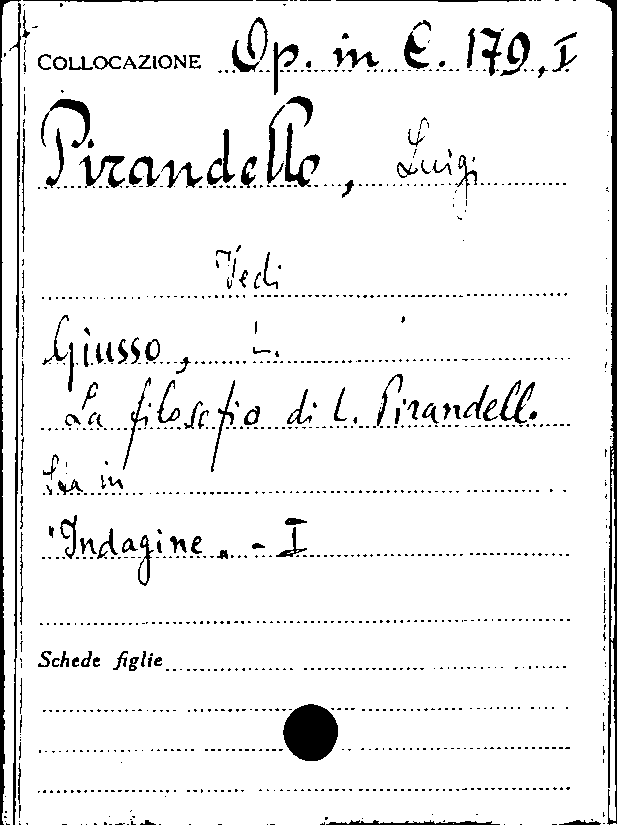 COLLOCAZIONE Op. in C. 179, I
Pirandello, Luigi
Vedi
Giusso, L.
La filosofia di L. Pirandello
Sta in
"Indagine„ - I
Schede figlie